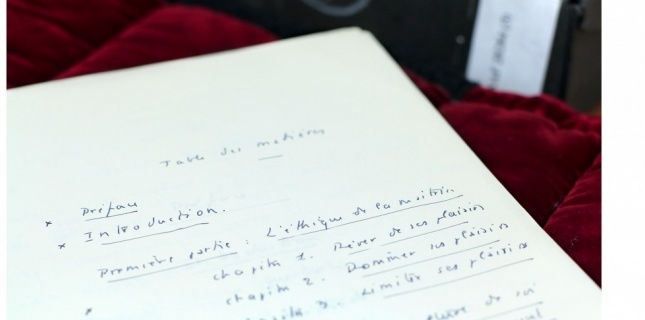 Table des matières
* Préface
* Introduction.
Première partie : L'éthique de la maîtrise
chapitre 1. Rêver de ses plaisirs
chapitre 2. Dominer ses plaisirs
3. Limiter ses plaisirs
de soi